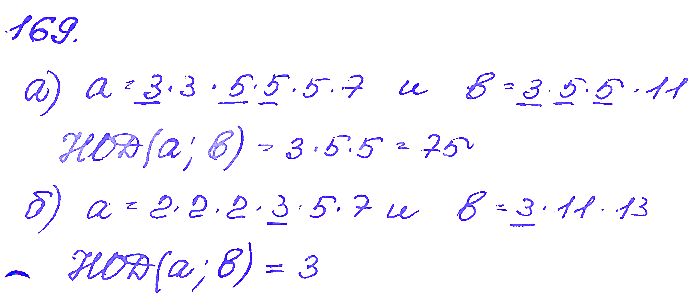 169.
а) a = 3·3·5·5·5·7 и b = 3·5·5·11
НОД(a; b) = 3·5·5 = 75
б) a = 2·2·2·3·5·7 и b = 3·11·13
НОД(a; b) = 3